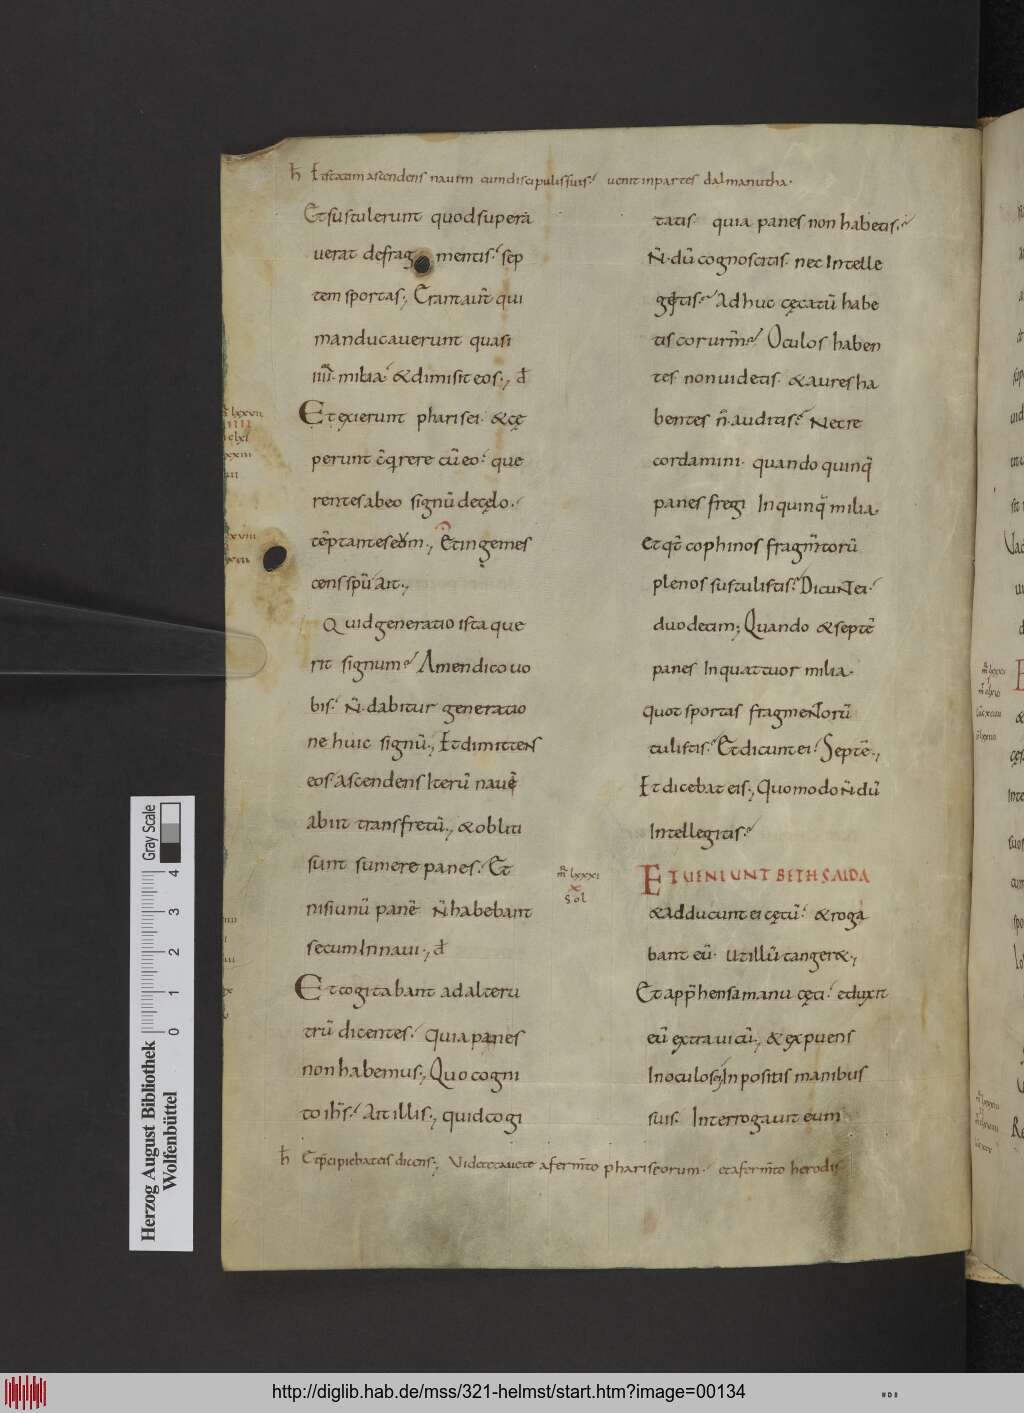 h̄ Et statim ascendens nauem cum discipulis suis. uenit in partes dalmanutha.
Et sustulerunt quod supera
uerat de frag mentis. sep
tem sportas; Erant aut̄ qui
manducauerunt quasi
iiii. milia. & dimisit eos; d̄
Et exierunt pharisei. & cę
perunt c̄q̄rere cū eo. que
rentes ab eo signū de cęlo.
tēptantes eum; Et ingemes
cens spū ait;
Quid generatio ista que
rit signum? Amen dico uo
bis. N̄ dabitur generatio
ne huic signū; Et dimittens
eos ascendens iterū nauē
abiit trans fretū; & obliti
sunt sumere panes. Et
nisi unū panē N̄ habebant
secum in naui; d̄
Et cogitabant ad alteru
trū dicentes. quia panes
non habemus; Quo cogni
to ih̄s. Ait illis; quid cogi
h̄ Et p̄cipiebat eis dicens; Videte cauete a ferm̄to phariseorum. et a ferm̄to herodis
tatis. quia panes non habetis;
N̄. dū cognoscitis. nec intelle
gitis? Adhuc cęcatū habe
tis cor ur̄m? Oculos haben
tes non uidetis. & aures ha
bentes n̄. auditis? Nec re
cordamini. quando quinq̄
panes fregi In quinq̄ milia.
Et qt̄ cophinos fragm̄torū
plenos sustulistis? Dicunt ei.
duodecim; Quando & septē
panes In quattuor milia.
quot sportas fragmentorū
tulistis? Et dicunt ei. Septē;
Et dicebat eis; Quomodo N̄ dū
Intellegitis?
m̄ lxxxi
x
Sol
ET UENIUNT BETHSAIDA
& adducunt ei cęcū. & roga
bant eū. ut illū tanger&;
Et app̄hensa manu cęci. eduxit
eū extra uicū; & expuens
In oculos ei In positis manibus
suis. Interrogauit eum
Gray Scale
0 1 2 3 4
Herzog August Bibliothek
Wolfenbüttel
http://diglib.hab.de/mss/321-helmst/start.htm?image=00134